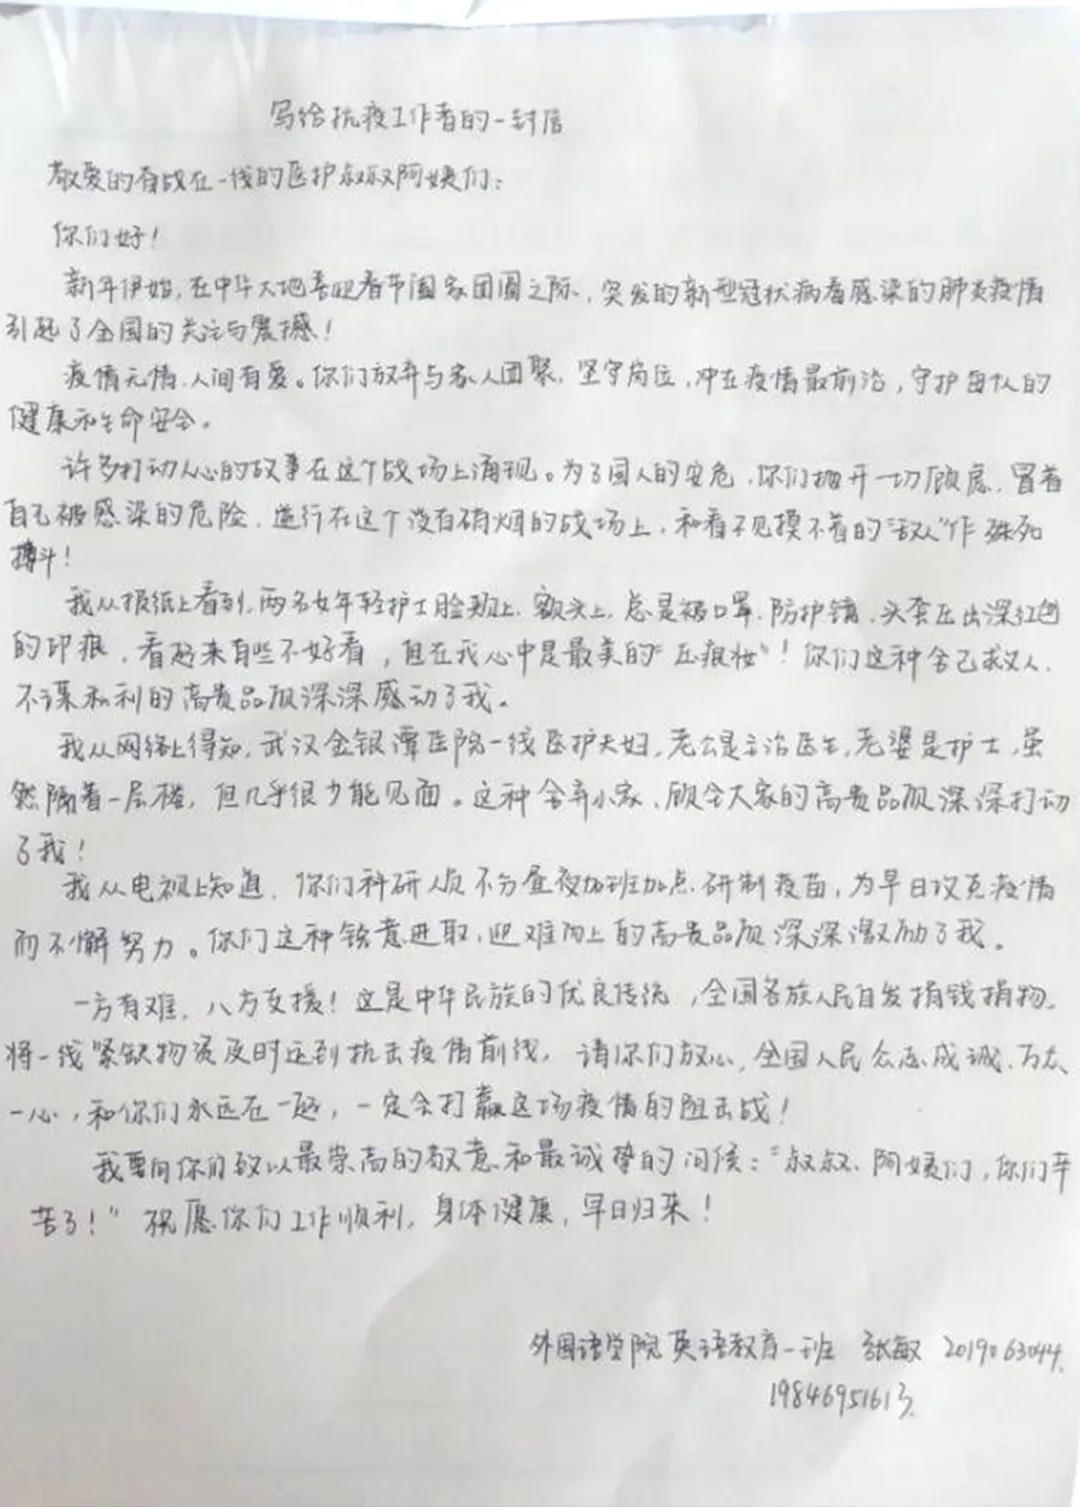 写给抗疫工作者的一封信
敬爱的奋战在一线的医护叔叔阿姨们：
你们好！
新年伊始，在中华大地喜迎春节阖家团圆之际，突发的新型冠状病毒感染的肺炎疫情
引起了全国的关注与震撼！
疫情无情，人间有爱。你们放弃与家人团聚，坚守岗位，冲在疫情最前沿，守护每个人的
健康和生命安全。
许多打动人心的故事在这个战场上涌现。为了国人的安危，你们抛开一切顾虑，冒着
自己被感染的危险，逆行在这个没有硝烟的战场上，和看不见摸不着的“敌人”作殊死
搏斗！
我从报纸上看到，两名女年轻护士脸颊上、额头上，总是被口罩、防护镜、头套压出深红色
的印痕，看起来有些不好看，但在我心中是最美的“压痕妆”！你们这种舍己救人、
不谋私利的高贵品质深深感动了我。
我从网络上得知，武汉金银潭医院一线医护夫妇，老公是主治医生，老婆是护士，虽
然隔着一层楼，但几乎很少能见面。这种舍弃小家、顾全大家的高贵品质深深打动
了我！
我从电视上知道，你们科研人员不分昼夜加班加点，研制疫苗，为早日攻克疫情
而不懈努力。你们这种锐意进取，迎难向上的高贵品质深深激励了我。
一方有难，八方支援！这是中华民族的优良传统，全国各族人民自发捐钱捐物，
将一线紧缺物资及时运到抗击疫情前线，请你们放心，全国人民众志成诚、万众
一心，和你们永远在一起，一定会打赢这场疫情的阻击战！
我要向你们致以最崇高的敬意和最诚挚的问候：“叔叔、阿姨们，你们辛
苦了！”祝愿你们工作顺利，身体健康，早日归来！
外国语学院英语教育一班 张敏 2019063044.
19846951613.